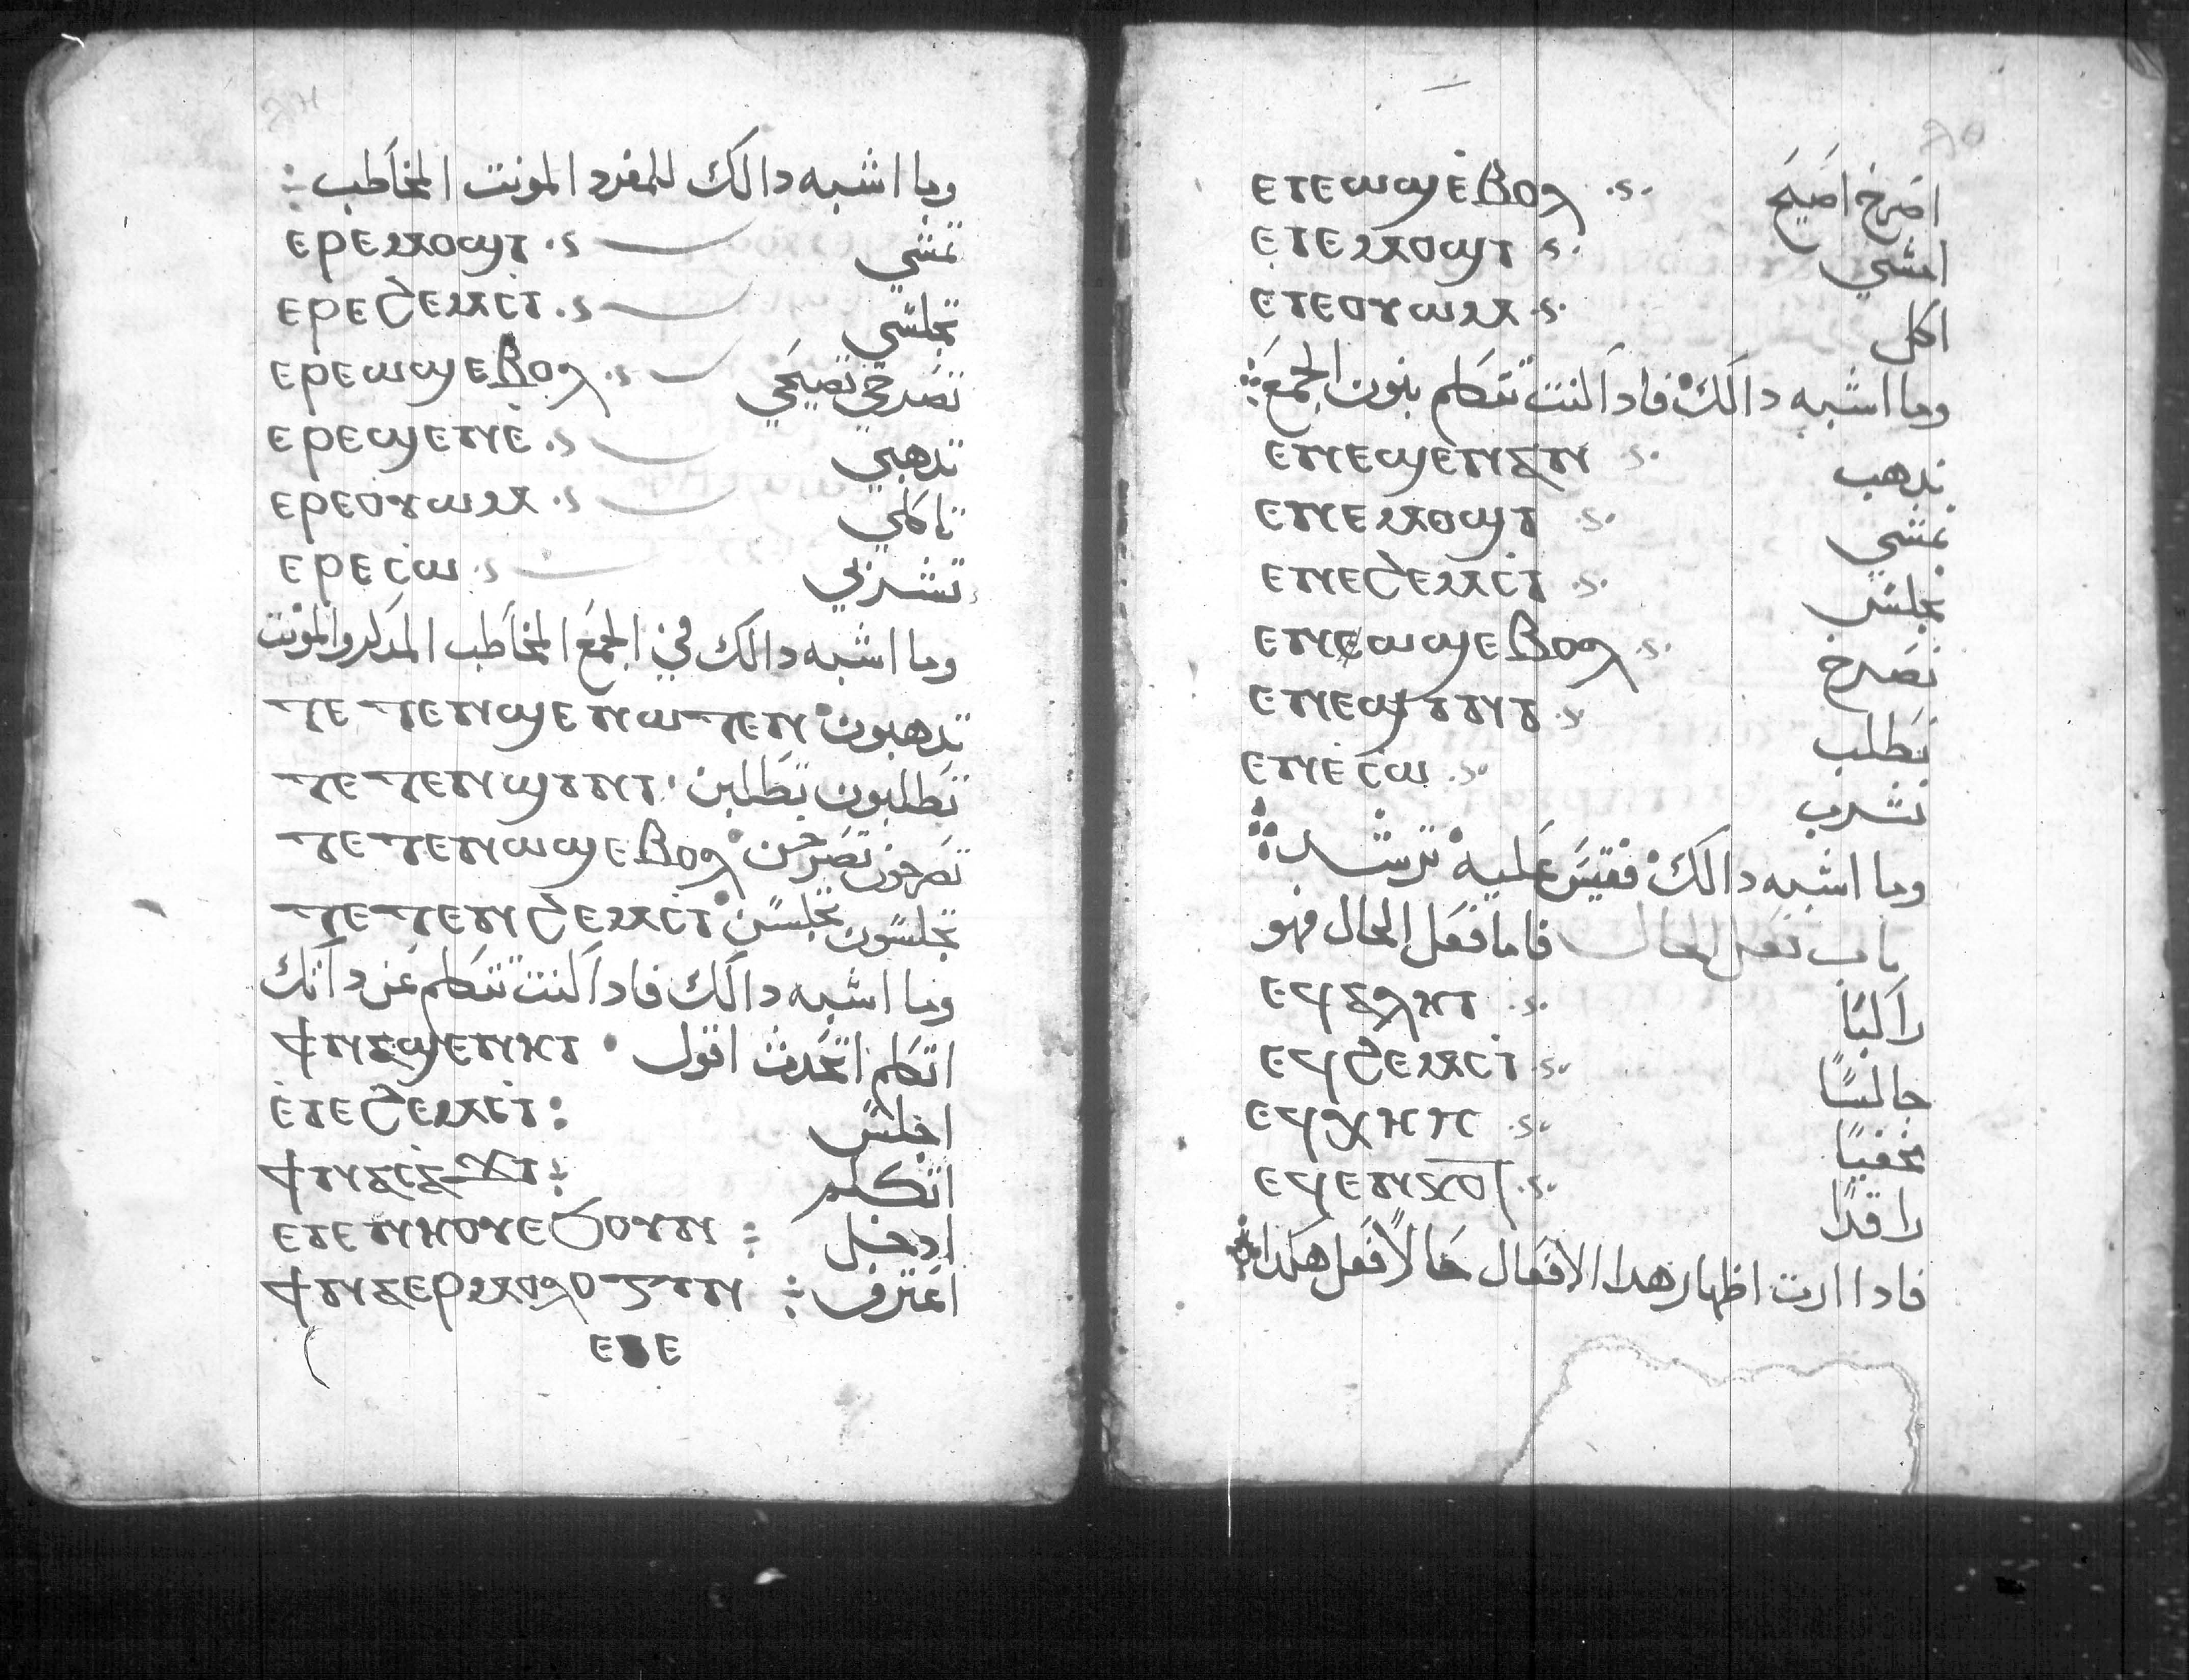 وما اشبه دالك للمفرد المونت المخاطب
ⲉⲣⲉⲙⲟϣⲓ تمشي
ⲉⲣⲉϩⲉⲙⲥⲓ تجلسي
ⲉⲣⲉⲱϣⲉⲃⲟⲗ تصرخي تصيحي
ⲉⲣⲉϣⲉⲛⲉ تدهبي
ⲉⲣⲉⲟⲩⲱⲙ تاكلي
ⲉⲣⲉⲥⲱ تشربي
وما اشبه دالك في الجمع المخاطب المدكر والمونت
ⲧⲉⲧⲉⲛϣⲉⲛⲱⲧⲉⲛ تدهبون
ⲧⲉⲧⲉⲛϣⲓⲛⲓ تطلبون تطلبن
ⲧⲉⲧⲉⲛⲱϣⲉⲃⲟⲗ تصرخون تصرخن
ⲧⲉⲧⲉⲛϩⲉⲙⲥⲓ تجلسون تجلسن
وما اشبه دالك فادا كنت تتكلم عن داتك
اتكلم اتحدث اقول ϯⲛⲁϣⲉⲛⲏⲓ
ⲉⲓⲉϩⲉⲙⲥⲓ: اجلس
ϯⲛⲁⲥⲁϫⲓ: اتكلم
ⲉⲓⲉⲛⲏⲟⲩⲉϧⲟⲩⲛ: ادخل
ϯⲛⲁⲉⲣⲙⲟⲗⲟⲅⲓⲛ: اعترف
ⲉⲓⲉ
ⲉⲓⲉⲱϣⲉⲃⲟⲗ اصرخ اصيح
ⲉⲓⲉⲙⲟϣⲓ امشي
ⲉⲓⲉⲟⲩⲱⲙ اكل
وما اشبه دالك فادا كنت تتكلم بنون الجمع
ⲉⲛⲉϣⲉⲛⲁⲛ ندهب
ⲉⲛⲉⲙⲟϣⲓ نمشي
ⲉⲛⲉϩⲉⲙⲥⲓ نجلس
ⲉⲛⲉⲱϣⲉⲃⲟⲗ نصرخ
ⲉⲛⲉϣⲓⲛⲓ نطلب
ⲉⲛⲉⲥⲱ نشرب
وما اشبه دالك فقيس عليه ترشد
باب فعل الحال فاما فعل الحال فهو
ⲉϥⲁⲗⲏⲓ راكبًا
ⲉϥϩⲉⲙⲥⲓ جالسًا
ⲉϥⲭⲏⲡ مخفيًا
ⲉϥⲉⲛⲕⲟⲧ راقدًا
فادا اردت اظهار هدا الافعال حالًا فعل هكدا